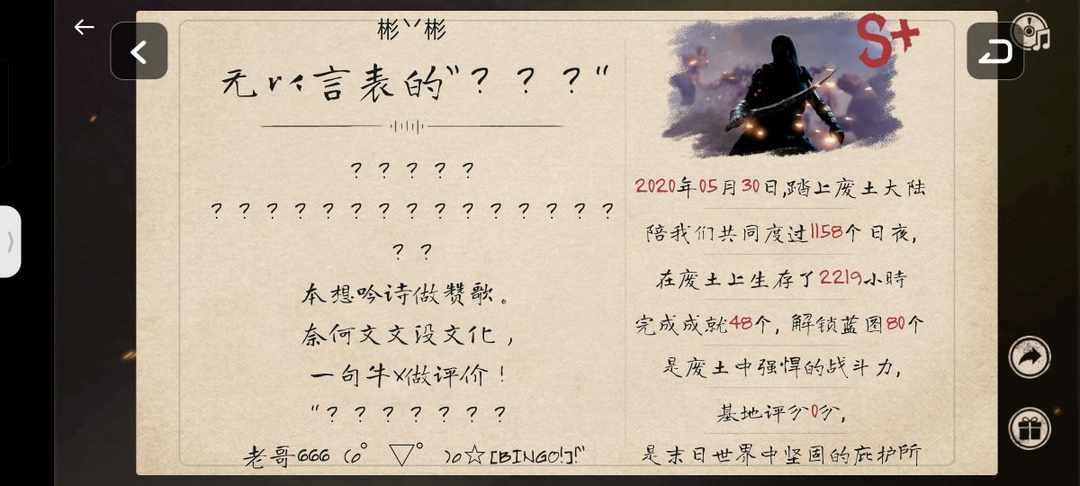 彬丷彬
无以言表的"？？？"
？？？？？
？？？？？？？？？？？？？？？
？？
本想吟诗做赞歌。
奈何文文没文化，
一句牛X做评价！
"？？？？？？？
老哥666（o゜▽゜）o☆[BINGO!]!"
S+
2020年05月30日,踏上废土大陆
陪我们共同度过1158个日夜,
在废土上生存了2219小時
完成成就48个，解锁蓝图80个
是废土中强悍的战斗力,
基地评分0分,
是末日世界中坚固的庇护所